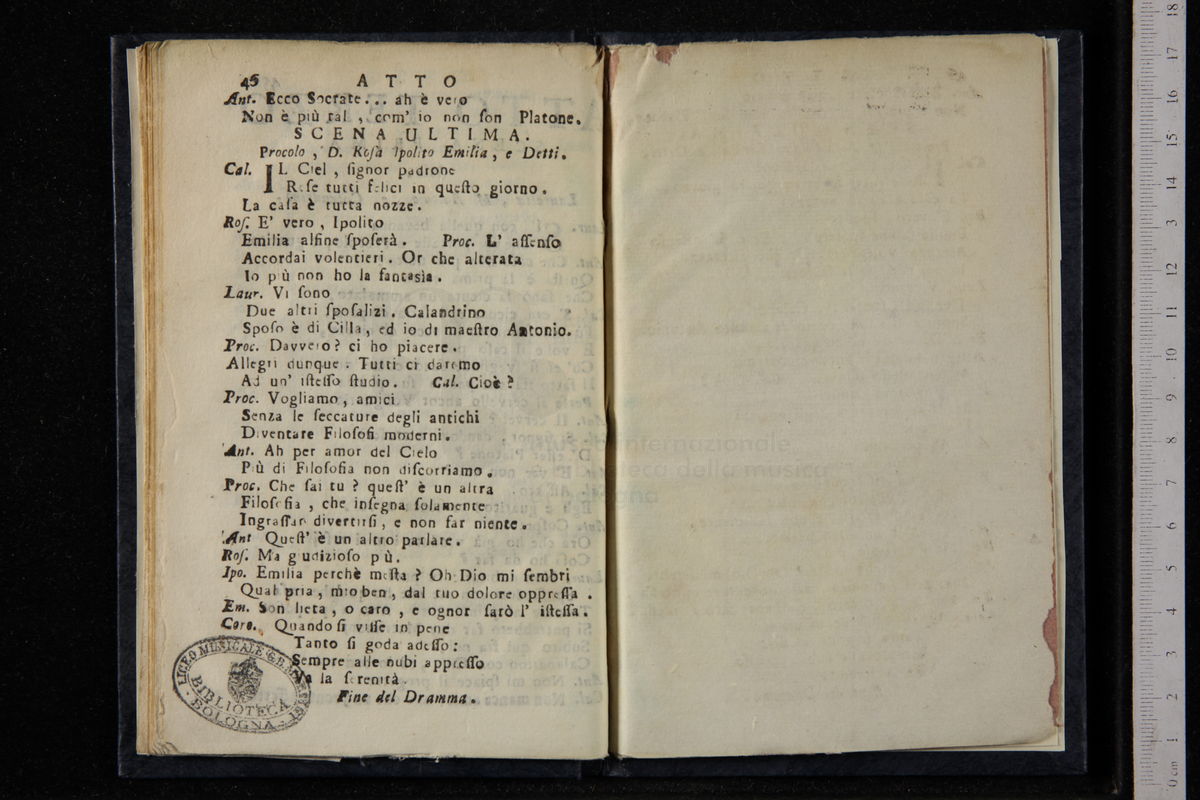 46 ATTO
Ant. Ecco Socrate... ah è vero
Non è più tal, com' io non ſon Platone.
SCENA ULTIMA.
Procolo, D. Roſa Ipolito Emilia, e Detti.
Cal. IL Ciel, ſignor padrone
Reſe tutti felici in queſto giorno.
La caſa è tutta nozze.
Roſ. E' vero, Ipolito
Emilia alfine ſpoſerà. Proc. L' aſſenſo
Accordai volentieri. Or che alterata
Io più non ho la fantasìa.
Laur. Vi ſono
Due altri ſpoſalizi. Calandrino
Spoſo è di Cilla, ed io di maeſtro Antonio.
Proc. Davvero? ci ho piacere.
Allegri dunque. Tutti ci daremo
Ad un' iſteſſo ſtudio. Cal. Cioè?
Proc. Vogliamo, amici
Senza le ſeccature degli antichi
Diventare Filoſofi moderni.
Ant. Ah per amor del Cielo
Più di Filoſofia non diſcorriamo.
Proc. Che ſai tu? queſt' è un altra
Filoſofia, che inſegna ſolamente
Ingraſſar divertirſi, e non far niente.
Ant Queſt' è un altro parlare.
Roſ. Ma giudizioſo più.
Ipo. Emilia perchè meſta? Oh Dio mi ſembri
Qual pria, mio ben, dal tuo dolore oppreſſa.
Em. Son lieta, o caro, e ognor ſarò l' iſteſſa.
Coro. Quando ſi viſſe in pene
Tanto ſi goda adeſſo:
Sempre alle nubi appreſſo
Va la ſerenità.
Fine del Dramma.
LICEO MUSICALE G.B. M
BIBLIOTECA
BOLOGNA
internazionale
biblioteca della musica
0 cm 1 2 3 4 5 6 7 8 9 10 11 12 13 14 15 16 17 18